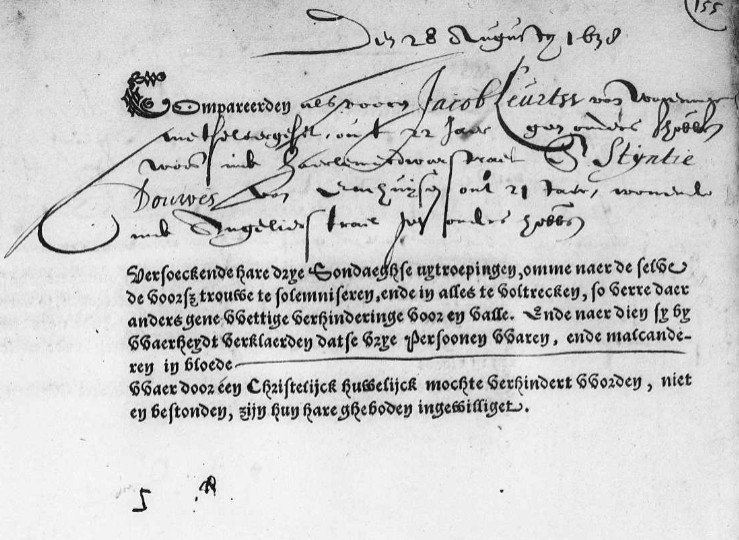 155
Den 28 Augusty 1638
Compareerden als vooren Jacob Leurtsz van
out 22 Jaer geen ouders hebb
woon inde Haerlemmerdwarsstraet & Styntie
Douwes van Enchuysen out 21 Jaer, wonende
inde Angeliers straet geen ouders hebb
Versoeckende hare drye Sondaeghse uytroepingen, omme naer de selve
de voorsz trouwe te solemniseren, ende in alles te voltrecken, so verre daer
anders gene VVettige verhinderinge voor en valle. Ende naer dien sy by
VVaerheydt verklaerden datse vrye Persoonen VVaren, ende malcande-
ren in bloede
VVaer door een Christelijck huwelijck mochte verhindert VVorden, niet
en bestonden, zijn hun hare gheboden ingewilliget.